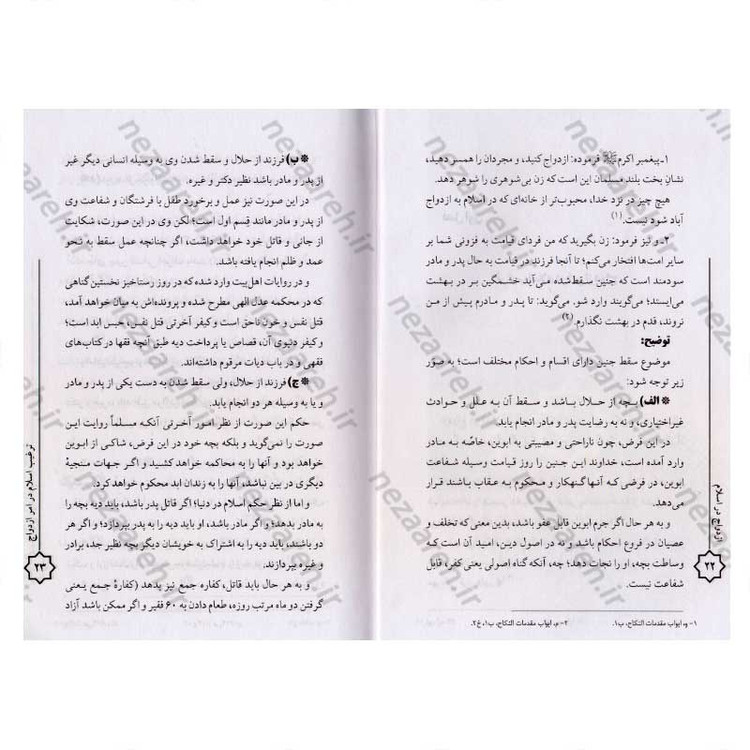 ۱ـ پیغمبر اکرم ﷺ فرموده: ازدواج کنید، و مجردان را همسر دهید،
نشان بخت بلند مسلمان این است که زن بی‌شوهری را شوهر دهد.
هیچ چیز در نزد خدا، محبوب‌تر از خانه‌ای که در اسلام به ازدواج
آباد شود نیست.(۱)
۲ـ و نیز فرمود: زن بگیرید که من فردای قیامت به فزونی شما بر
سایر امت‌ها افتخار می‌کنم؛ تا آنجا فرزند در قیامت به حال پدر و مادر
سودمند است که جنین سقط‌شده می‌آید خشمگین بر در بهشت
می‌ایستد؛ می‌گویند وارد شو. می‌گوید: تا پدر و مادرم پیش از من
نروند، قدم در بهشت نگذارم.(۲)
توضیح:
موضوع سقط جنین دارای اقسام و احکام مختلف است؛ به صوَر
زیر توجه شود:
الف) بچه از حلال باشد و سقط آن به علل و حوادث
غیراختیاری، و نه به رضایت پدر و مادر انجام یابد.
در این فرض، چون ناراحتی و مصیبتی به ابوین، خاصّه به مادر
وارد آمده است، خداوند این جنین را روز قیامت وسیله شفاعت
ابوین، در فرضی که آنها گنهکار و محکوم به عقاب باشند قرار
می‌دهد.
و به هر حال اگر جرم ابوین قابل عفو باشد، بدین معنی که تخلف و
عصیان در فروع احکام باشد و نه در اصول دین، امید آن است که
وساطت بچه، او را نجات دهد؛ چه، آنکه گناه اصولی یعنی کفر، قابل
شفاعت نیست.
۱- و، ابواب مقدمات النکاح، ب۱.
۲- م، ابواب مقدمات النکاح، ب۱، خ۲.
ازدواج در اسلام
۲۲
ب) فرزند از حلال و سقط شدن وی به وسیله انسانی دیگر غیر
از پدر و مادر باشد نظیر دکتر و غیره.
در این صورت نیز عمل و برخورد طفل با فرشتگان و شفاعت وی
از پدر و مادر مانند قِسم اول است؛ لکن وی در این صورت، شکایت
از جانی و قاتل خود خواهد داشت، اگر چنانچه عمل سقط به نحو
عمد و ظلم انجام یافته باشد.
و در روایات اهل‌بیت وارد شده که در روز رستاخیز نخستین گناهی
که در محکمه عدل الهی مطرح شده و پرونده‌اش به میان خواهد آمد،
قتل نفس و خون ناحق است و کیفر آخرتی قتل نفس، حبس ابد است؛
و کیفر دنیوی آن، قصاص یا پرداخت دیه طبق آنچه فقها در کتاب‌های
فقهی و در باب دیات مرقوم داشته‌اند.
ج) فرزند از حلال، ولی سقط شدن به دست یکی از پدر و مادر
و یا به وسیله هر دو انجام یابد.
حکم این صورت از نظر امور آخرتی آنکه مسلماً روایت این
صورت را نمی‌گوید و بلکه بچه خود در این فرض، شاکی از ابوین
خواهد بود و آنها را به محاکمه خواهد کشید و اگر جهات منجیهٔ
دیگری در بین نباشد، آنها را به زندان ابد محکوم خواهد کرد.
و اما از نظر حکم اسلام در دنیا؛ اگر قاتل پدر باشد، باید دیه بچه را
به مادر بدهد؛ و اگر مادر باشد، او باید دیه را به پدر بپردازد؛ و اگر هر
دو باشند، باید دیه را به اشتراک به خویشان دیگر بچه نظیر جد، برادر
و غیره بپردازند.
و به هر حال باید قاتل، کفاره جمع نیز بدهد (کفارهٔ جمع یعنی
گرفتن دو ماه مرتب روزه، طعام دادن به ۶۰ فقیر و اگر ممکن باشد آزاد
ترغیب اسلام در امر ازدواج
۲۳
nezaareh.ir